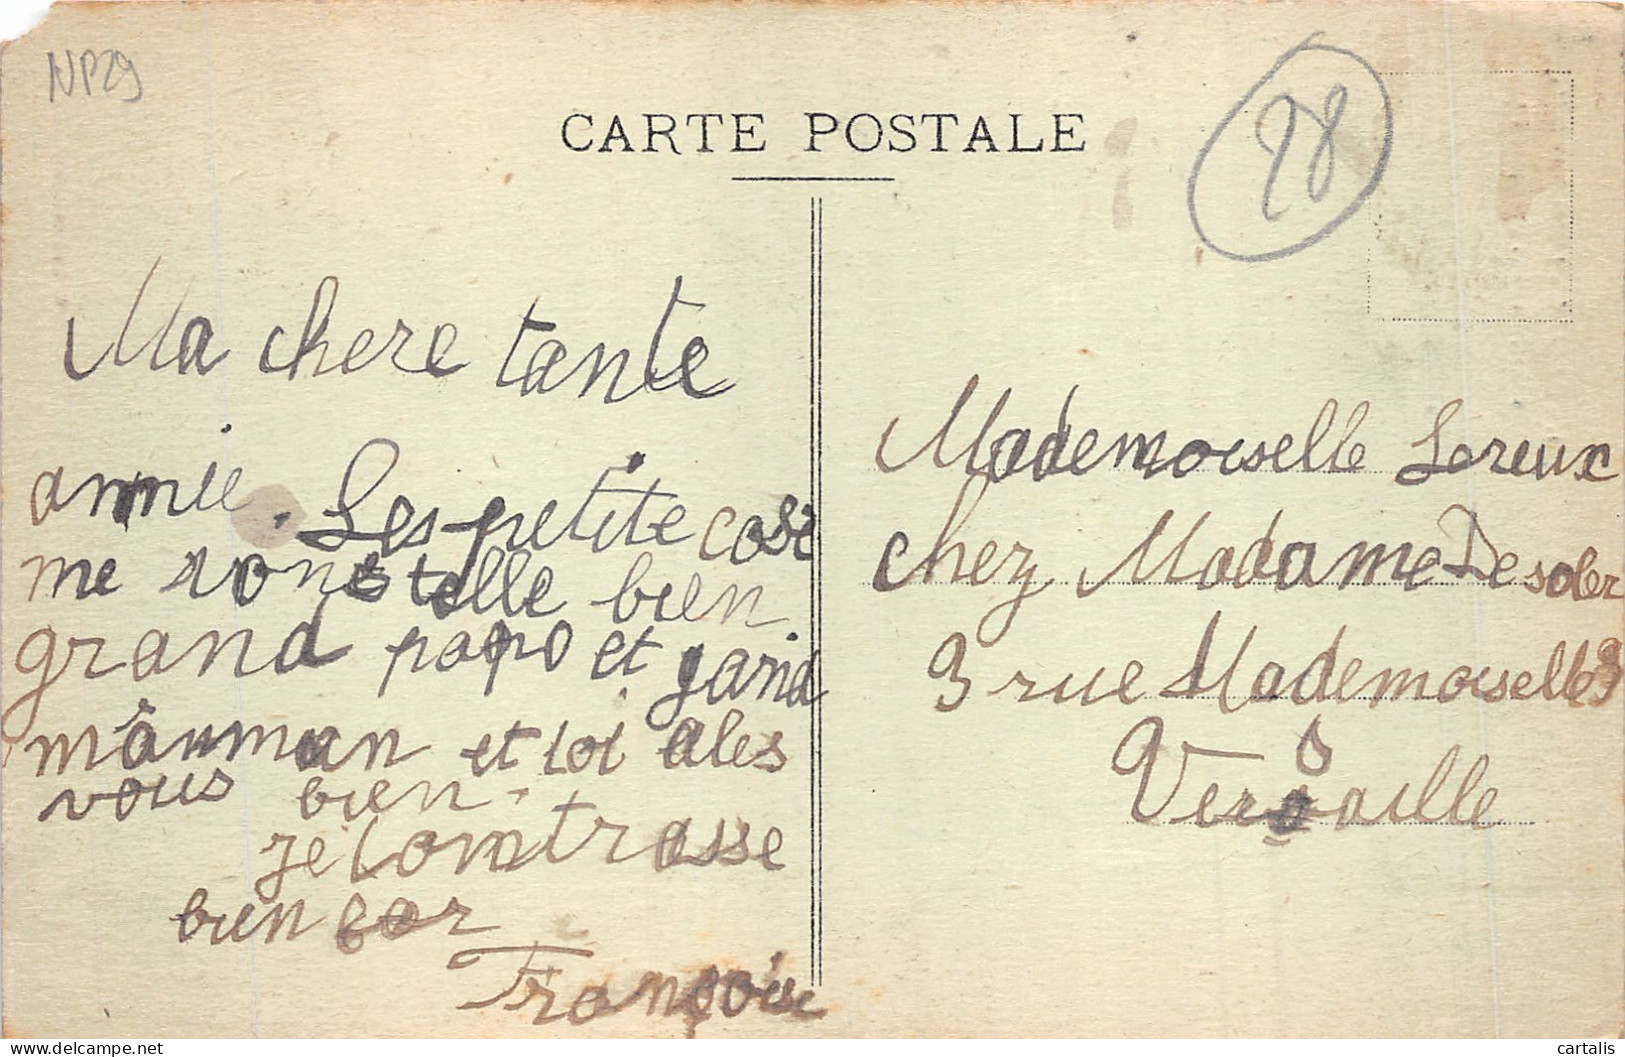 NP29
28
CARTE POSTALE
Ma chere tante
annie. Les petite cosi
me vont elle bien
grand papa et grand
mânman et toi ales
vous bien.
je
bien
Françoise
Mademoiselle Lereux
chez Madame Desoler
3 rue Mademoiselle 3
Versaille
delcampe.net
cartalis